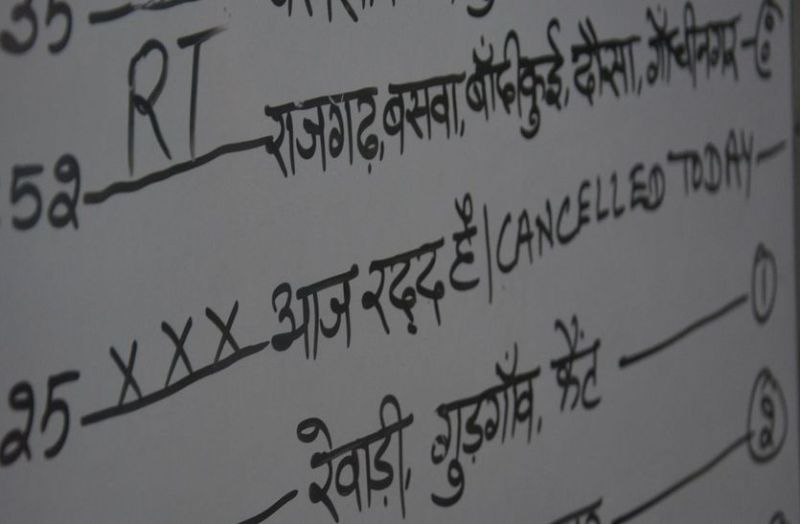 35
52 RT राजगढ़, बसवा, बाँदीकुई, दौसा, गाँधीनगर -
25 XXX आज रद्द है | CANCELLED TODAY -
रेवाड़ी, गुड़गाँव, कैंट — 1
2